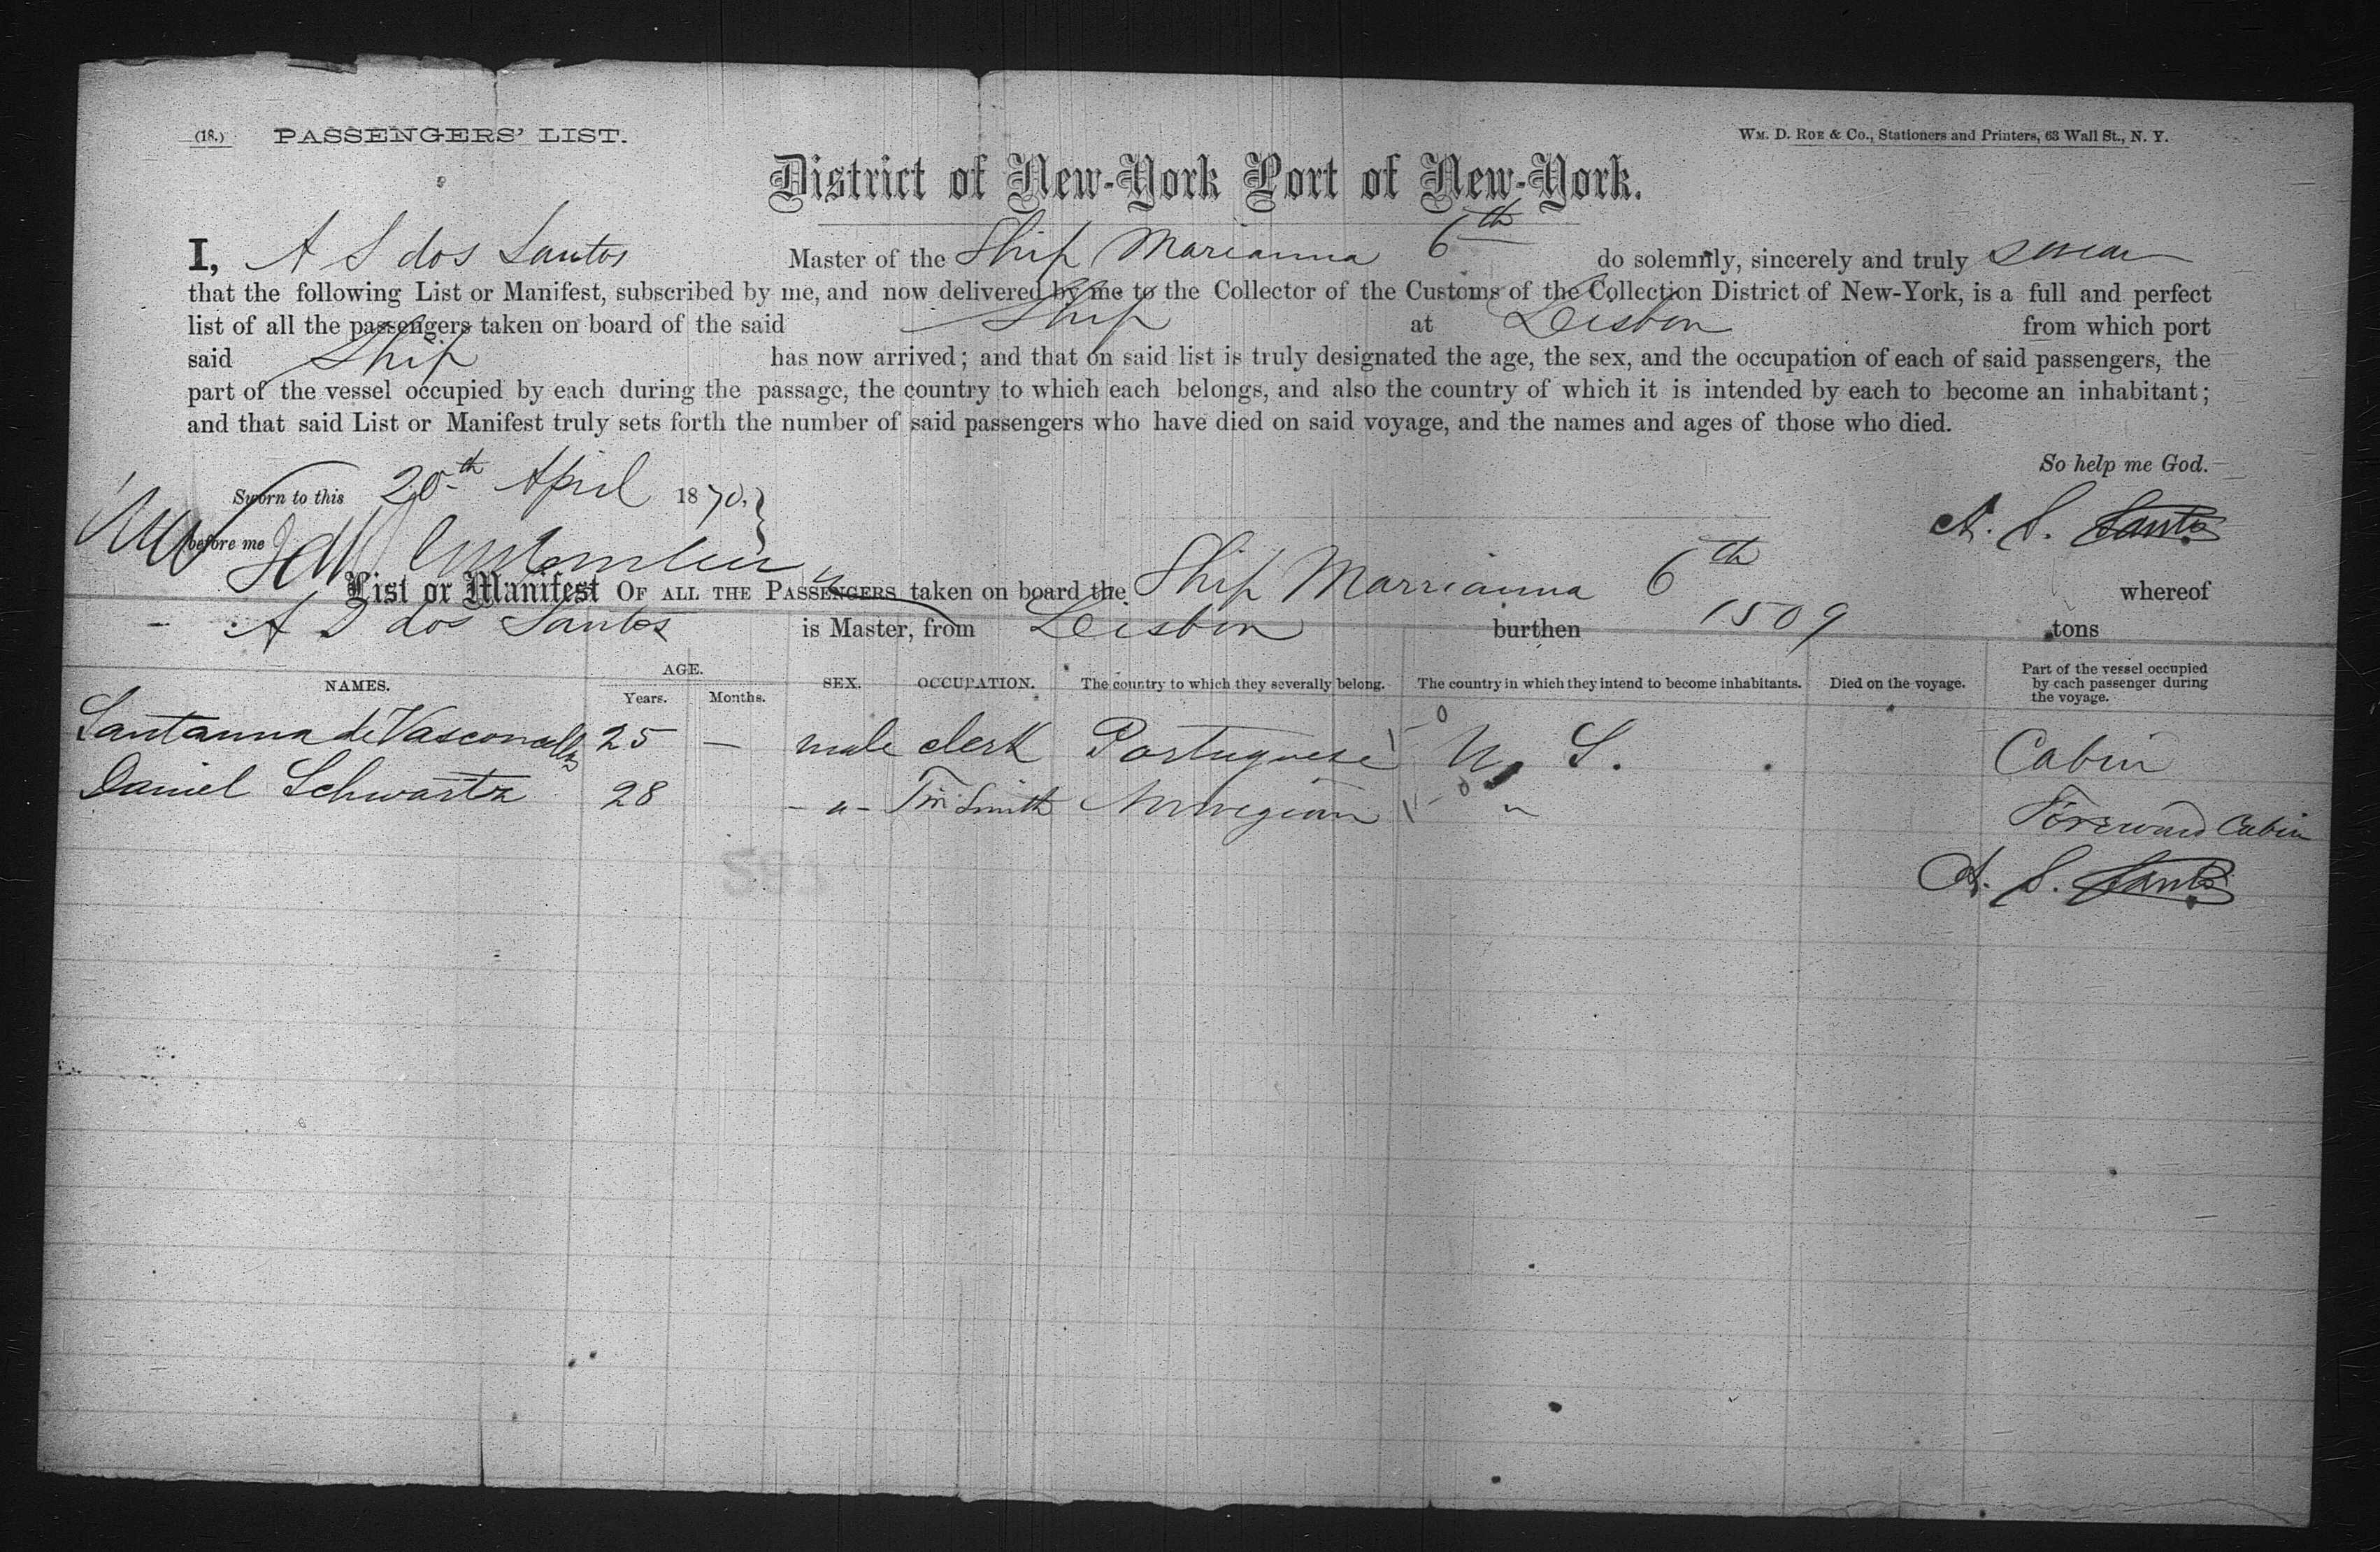 (18.) PASSENGERS' LIST.
WM. D. ROE & Co., Stationers and Printers, 63 Wall St., N. Y.
District of New-York Port of New-York.
I, A S dos Santos Master of the Ship Marianna 6th do solemnly, sincerely and truly swear
that the following List or Manifest, subscribed by me, and now delivered by me to the Collector of the Customs of the Collection District of New-York, is a full and perfect
list of all the passengers taken on board of the said Ship at Lisbon from which port
said Ship has now arrived; and that on said list is truly designated the age, the sex, and the occupation of each of said passengers, the
part of the vessel occupied by each during the passage, the country to which each belongs, and also the country of which it is intended by each to become an inhabitant;
and that said List or Manifest truly sets forth the number of said passengers who have died on said voyage, and the names and ages of those who died.
So help me God.
Sworn to this 20th April 1870.
A. S. Santos
before me
List or Manifest OF ALL THE PASSENGERS taken on board the Ship Marrianna 6th whereof
A S dos Santos is Master, from Lisbon burthen 1509 tons
NAMES. AGE. Years. Months. SEX. OCCUPATION. The country to which they severally belong. The country in which they intend to become inhabitants. Died on the voyage. Part of the vessel occupied by each passenger during the voyage.
Santanna de Vasconcellos 25 — male clerk Portuguese U. S. Cabin
Daniel Schwartz 28 - " - Tin Smith Norwegian " Foreward Cabin
A. S. Santos